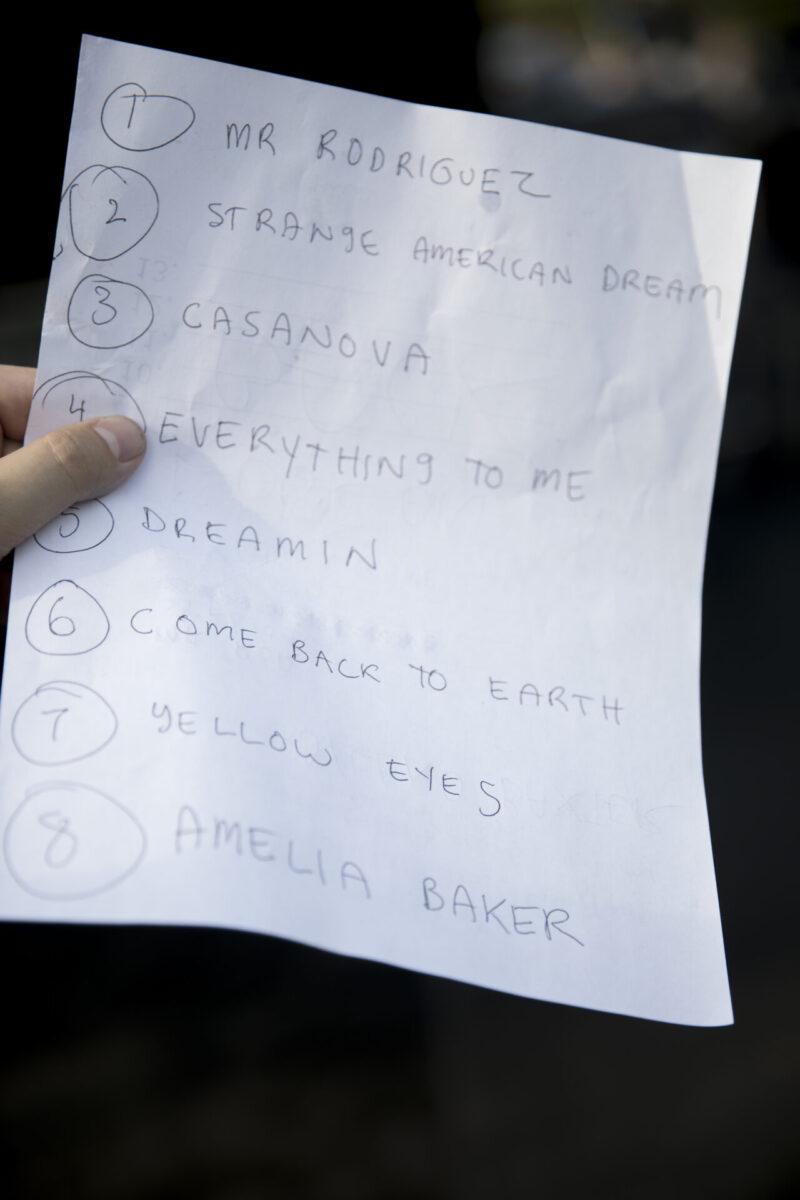 1 MR RODRIGUEZ
2 STRANGE AMERICAN DREAM
3 CASANOVA
4 EVERYTHING TO ME
5 DREAMIN
6 COME BACK TO EARTH
7 YELLOW EYES
8 AMELIA BAKER